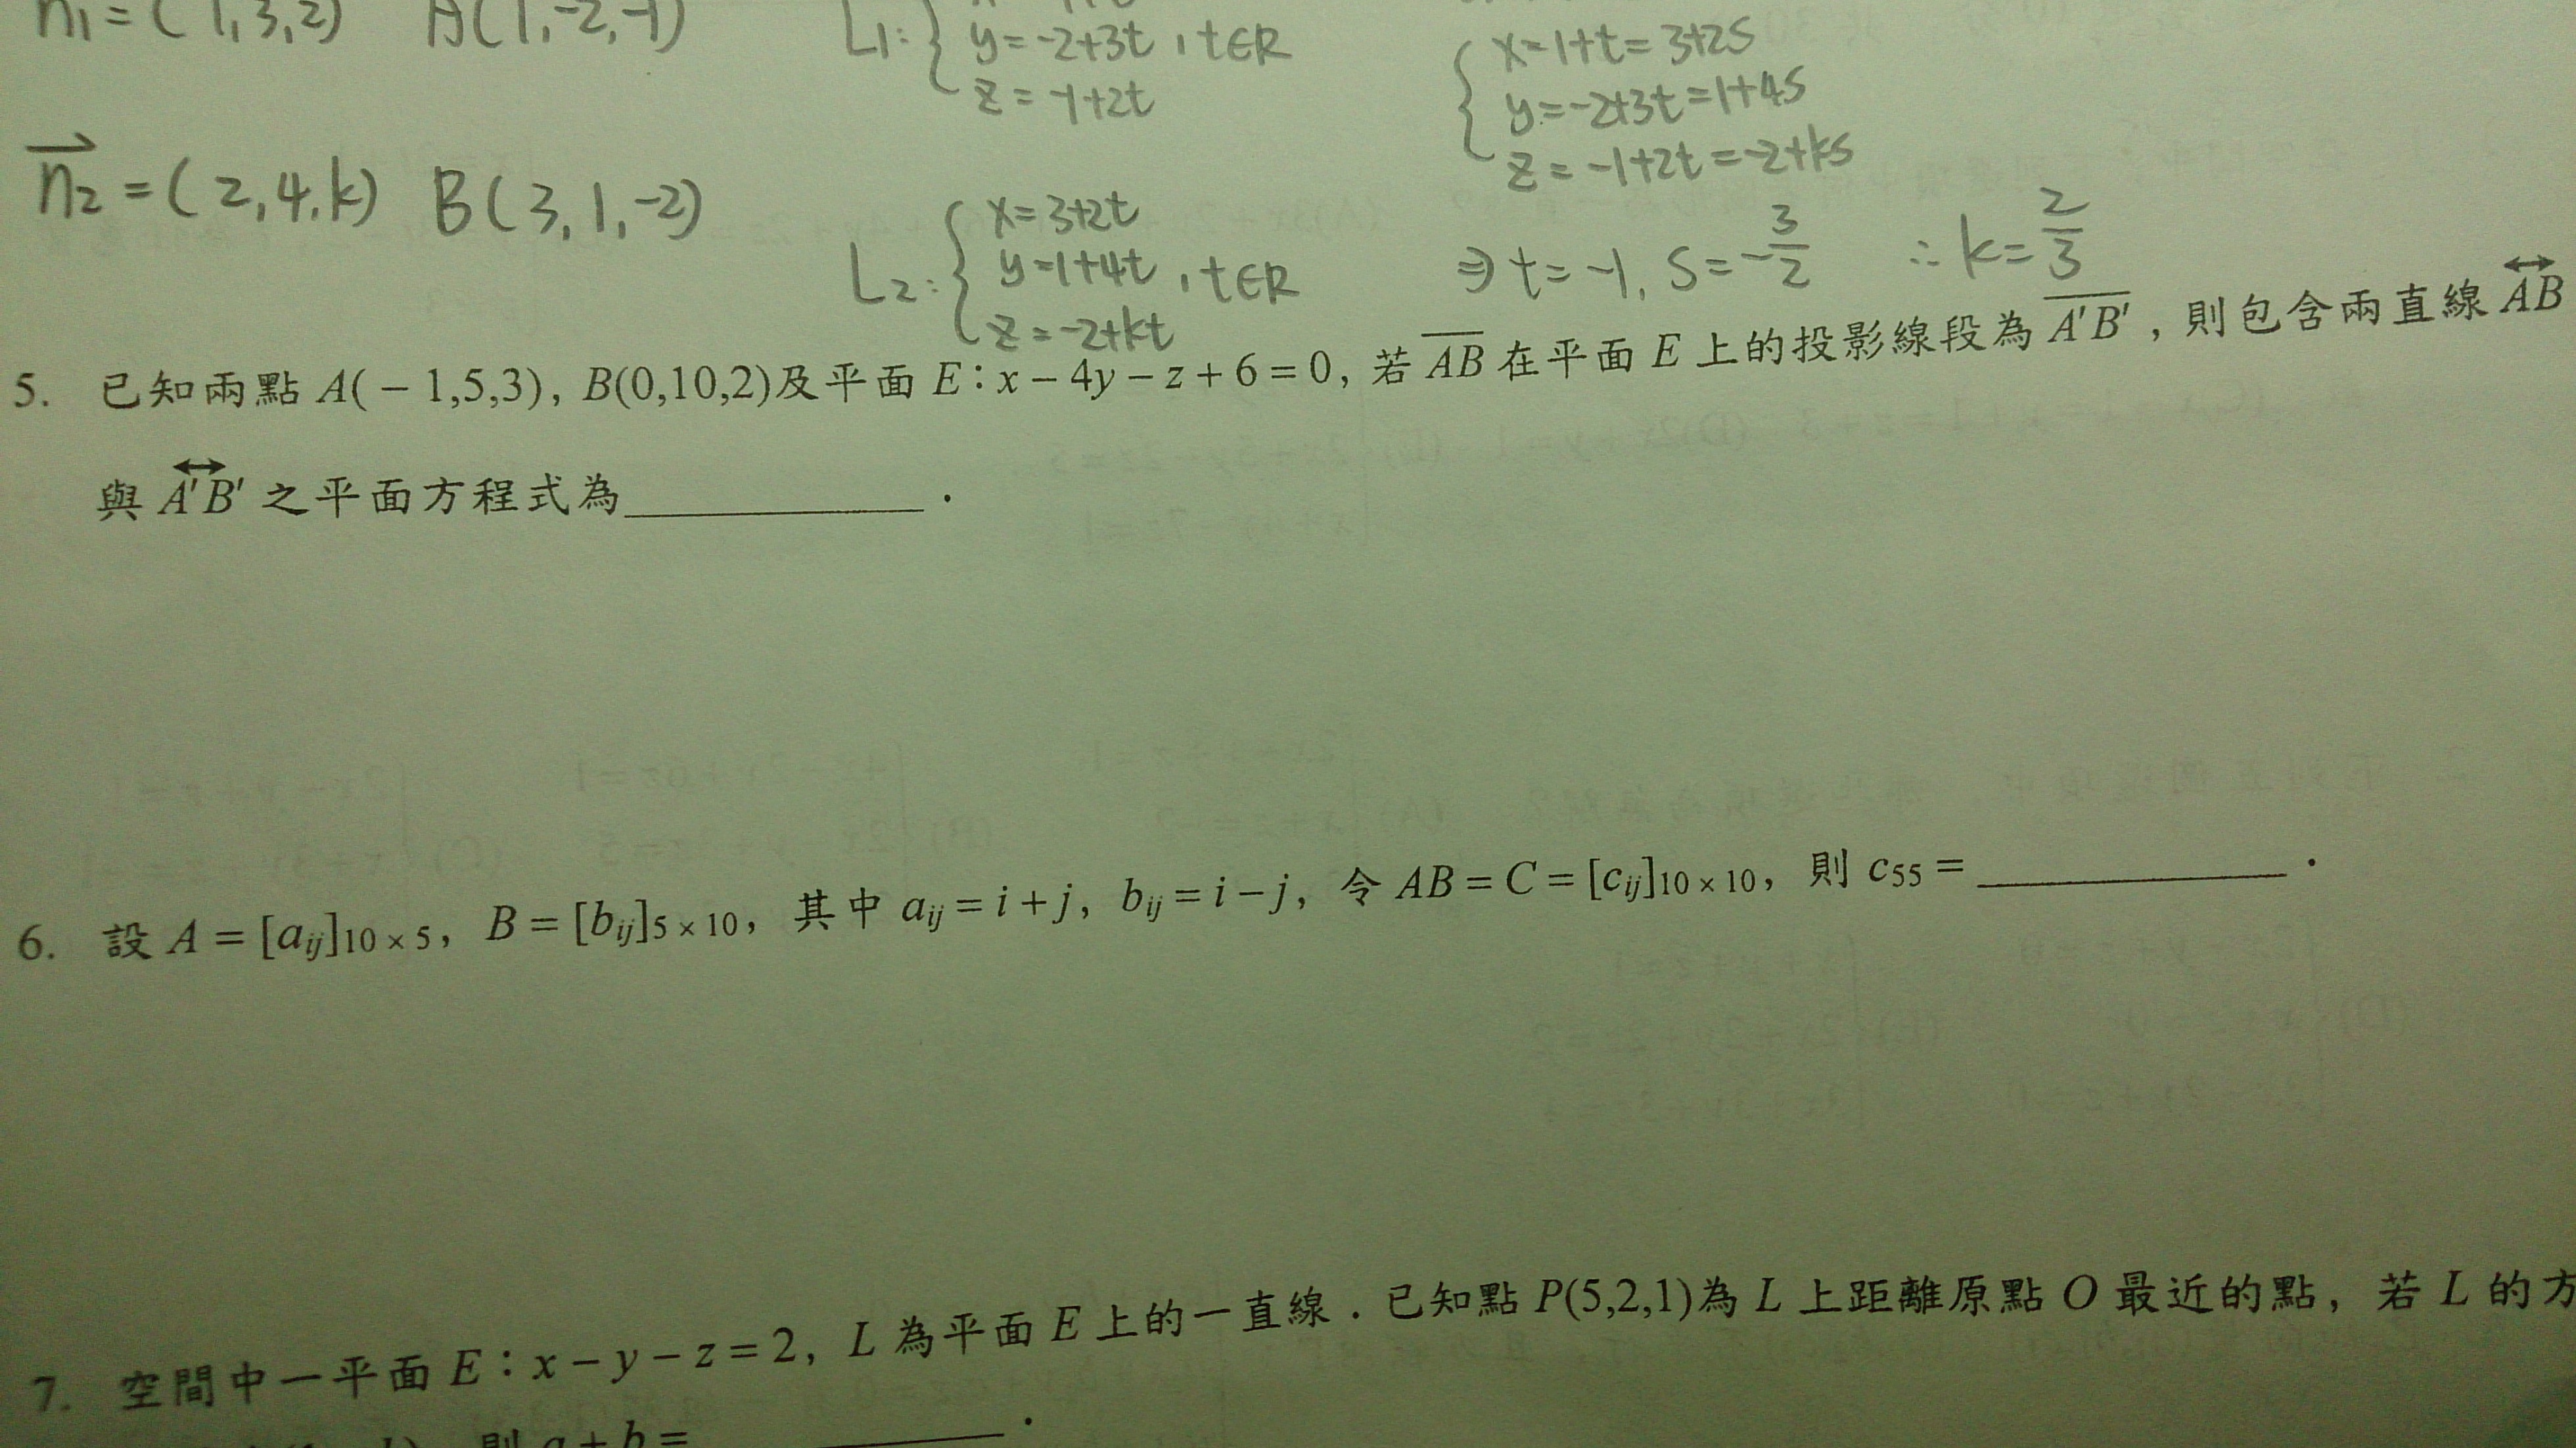 n₁ = (1,3,2) A(1,-2,-1)
L₁: { y=-2+3t , t∈R
z=-1+2t
{ x=1+t=3+2s
y=-2+3t=1+4s
z=-1+2t=-2+ks
⇒ t=-1, s=-3/2 ∴ k=2/3
n₂ = (2,4,k) B(3,1,-2)
L₂: { x=3+2t
y=1+4t , t∈R
z=-2+kt
5. 已知兩點 A(-1,5,3), B(0,10,2)及平面 E:x-4y-z+6=0, 若 AB 在平面 E 上的投影線段為 A'B' , 則包含兩直線 AB
與 A'B' 之平面方程式為____________ .
6. 設 A = [aij]10×5, B = [bij]5×10, 其中 aij = i + j, bij = i - j, 令 AB = C = [cij]10×10, 則 c55 = ____________ .
7. 空間中一平面 E:x-y-z=2, L 為平面 E 上的一直線.已知點 P(5,2,1)為 L 上距離原點 O 最近的點, 若 L 的方
則 a+b = ____________ .